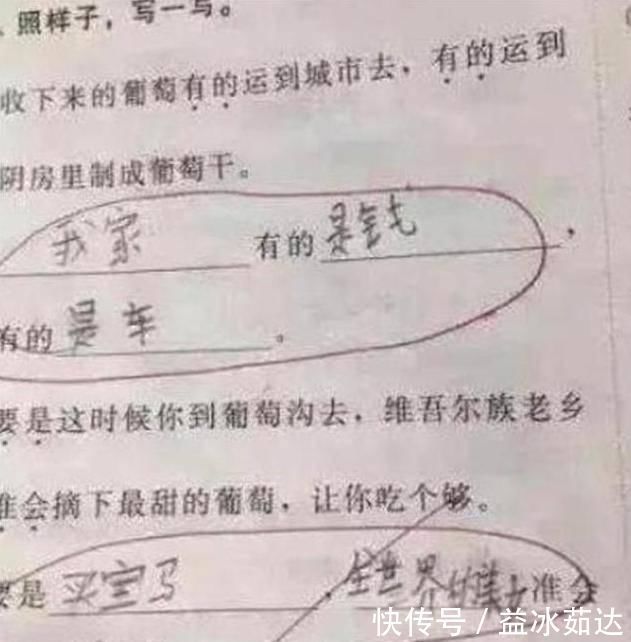 照样子，写一写。
收下来的葡萄有的运到城市去，有的运到
阴房里制成葡萄干。
我家有的是钱，
有的是车。
要是这时候你到葡萄沟去，维吾尔族老乡
准会摘下最甜的葡萄，让你吃个够。
要是买宝马，全世界的美女准会
快传号 / 益冰茹达